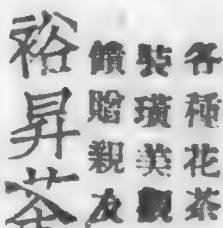 各種花茶
裝璜美觀
饋贈親友
裕昇茶